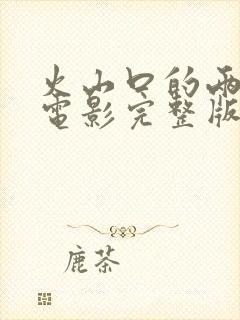 火山口的两
电影完整版
鹿茶